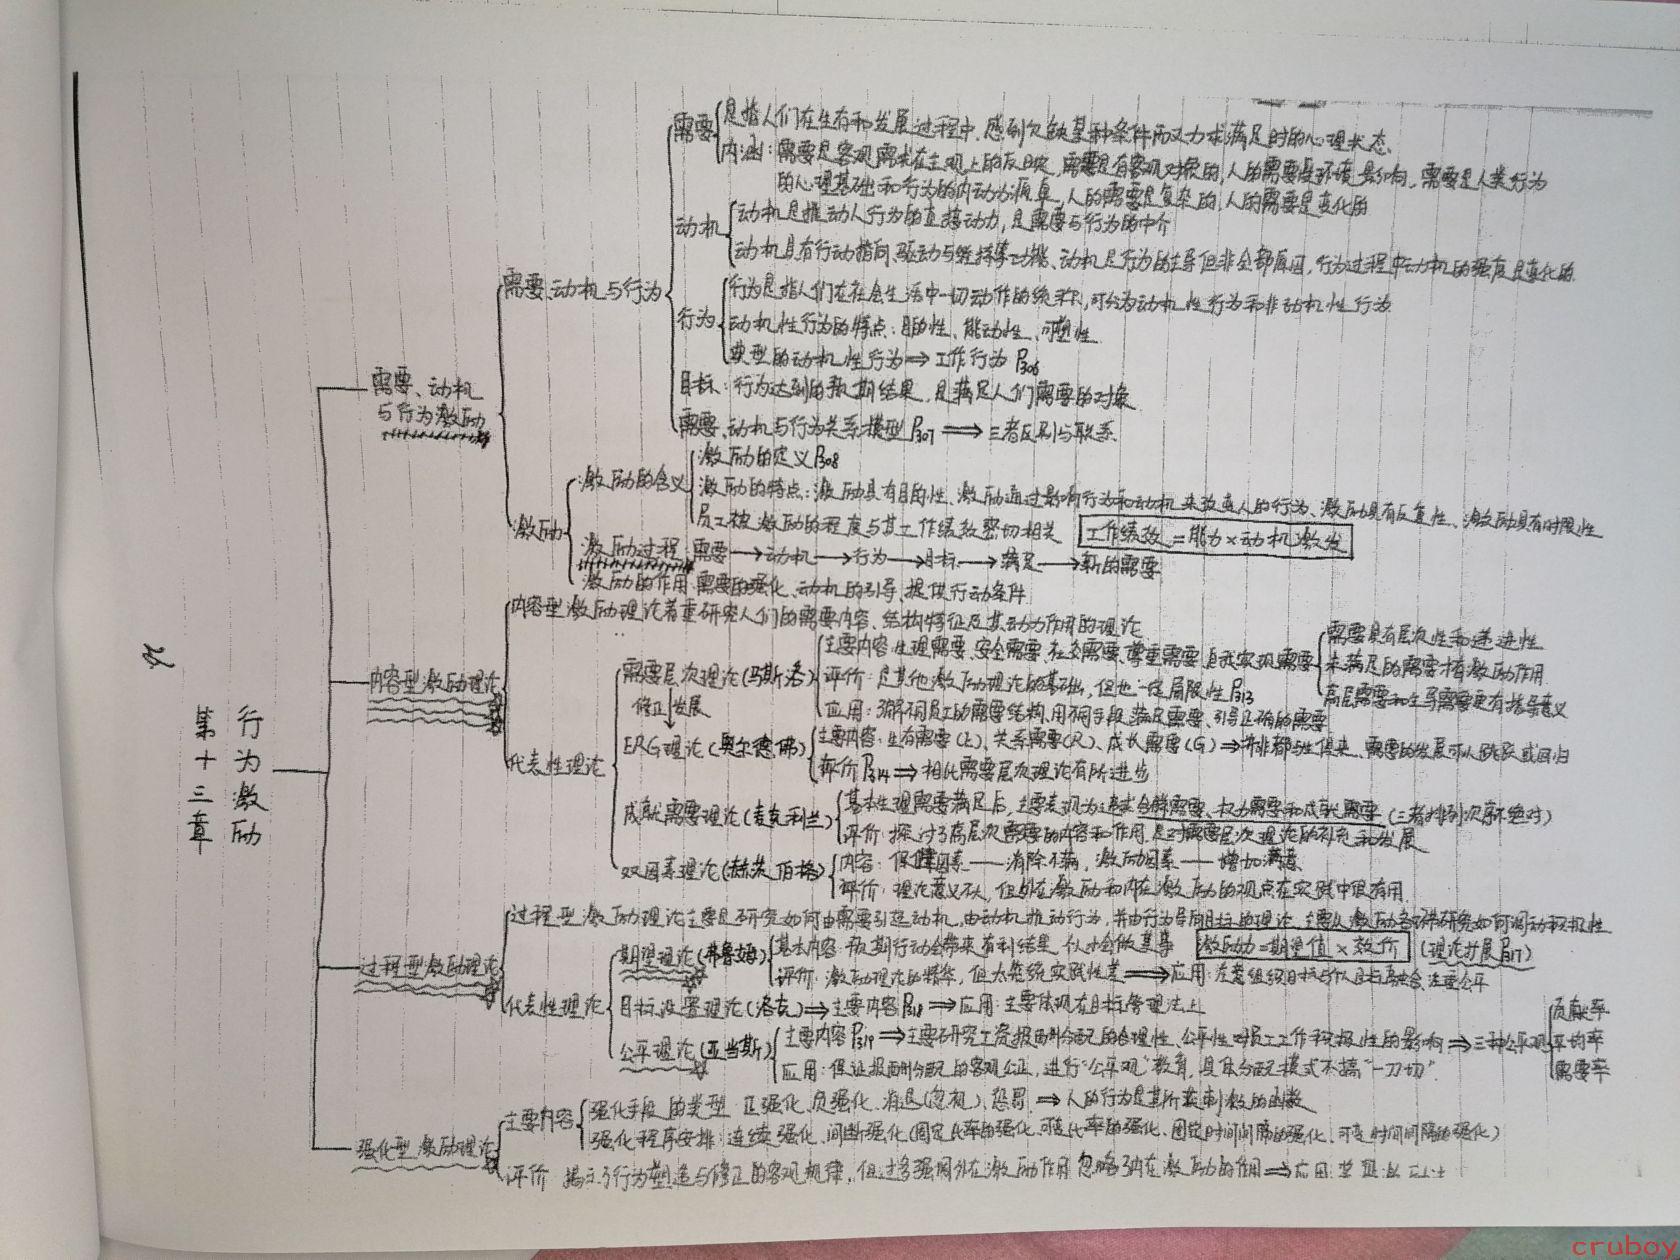 第十三章
行为激励
需要、动机
与行为激励
需要、动机与行为
需要
是指人们在生存和发展过程中，感到欠缺某种条件而又力求满足时的心理状态
内涵：需要是客观需求在主观上的反映，需要是有客观对象的，人的需要受环境影响，需要是人类行为
的心理基础和行为的内动力源泉，人的需要是复杂的，人的需要是变化的
动机
动机是推动人行为的直接动力，是需要与行为的中介
动机具有行动指向、驱动与维持等功能、动机是行为的主导但非全部原因，行为过程中动机的强度是变化的
行为
行为是指人们在社会生活中一切动作的统称，可分为动机性行为和非动机性行为
动机性行为的特点：目的性、能动性、可塑性
典型的动机性行为⇒工作行为 P306
目标：行为达到的预期结果，是满足人们需要的对象
需要、动机与行为关系模型 P307 ⇒ 三者区别与联系
激励
激励的含义
激励的定义 P308
激励的特点：激励具有目的性、激励通过影响行为和动机来改变人的行为、激励具有反复性、激励具有时限性
员工被激励的程度与其工作绩效密切相关 工作绩效=能力×动机激发
激励过程 需要→动机→行为→目标→满足→新的需要
激励的作用 需要的强化、动机的引导、提供行动条件
内容型激励理论
内容型激励理论着重研究人们的需要内容、结构特征及其动力作用的理论
代表性理论
需要层次理论(马斯洛)
主要内容 生理需要、安全需要、社交需要、尊重需要、自我实现需要
需要具有层次性和递进性
未满足的需要才有激励作用
高层需要和主导需要更有指导意义
评价：是其他激励理论的基础，但也一定局限性 P313
应用：了解不同员工的需要结构、用不同手段满足需要、引导正确的需要
修正 发展
ERG理论(奥尔德佛)
主要内容：生存需要(E)、关系需要(R)、成长需要(G)⇒并非都与生俱来、需要的发展可以跳跃或回归
评价 P314⇒相比需要层次理论有所进步
成就需要理论(麦克利兰)
基本生理需要满足后，主要表现为追求合群需要、权力需要和成就需要(三者排列次序不绝对)
评价：探讨了高层次需要的内容和作用，是对需要层次理论的补充和发展
双因素理论(赫茨伯格)
内容：保健因素——消除不满，激励因素——增加满意
评价：理论意义不大，但外在激励和内在激励的观点在实践中很有用
过程型激励理论
过程型激励理论主要是研究如何由需要引起动机，由动机推动行为，并由行为导向目标的理论，主要从激励各环研究如何调动积极性
代表性理论
期望理论(弗鲁姆)
基本内容：预期行动会带来有利结果 个人才会做某事 激励力=期望值×效价 (理论扩展P317)
评价：激励理论的精华，但太笼统实践性差⇒应用：注意组织目标与个人目标融合、注重公平
目标设置理论(洛克)⇒主要内容P318⇒应用：主要体现在目标管理法上
公平理论(亚当斯)
主要内容P319⇒主要研究工资报酬分配的合理性、公平性对员工工作积极性的影响⇒三种公平观
贡献率
平均率
需要率
应用：保证报酬分配的客观公正，进行“公平观”教育，具体分配模式不搞“一刀切”
强化型激励理论
主要内容
强化手段的类型 正强化、负强化、消退(忽视)、惩罚⇒人的行为是其所获刺激的函数
强化程序安排：连续强化、间断强化(固定比率的强化、可变比率的强化、固定时间间隔的强化、可变时间间隔的强化)
评价 揭示了行为塑造与修正的客观规律，但过多强调外在激励作用 忽略了内在激励的作用⇒应用
cruboy